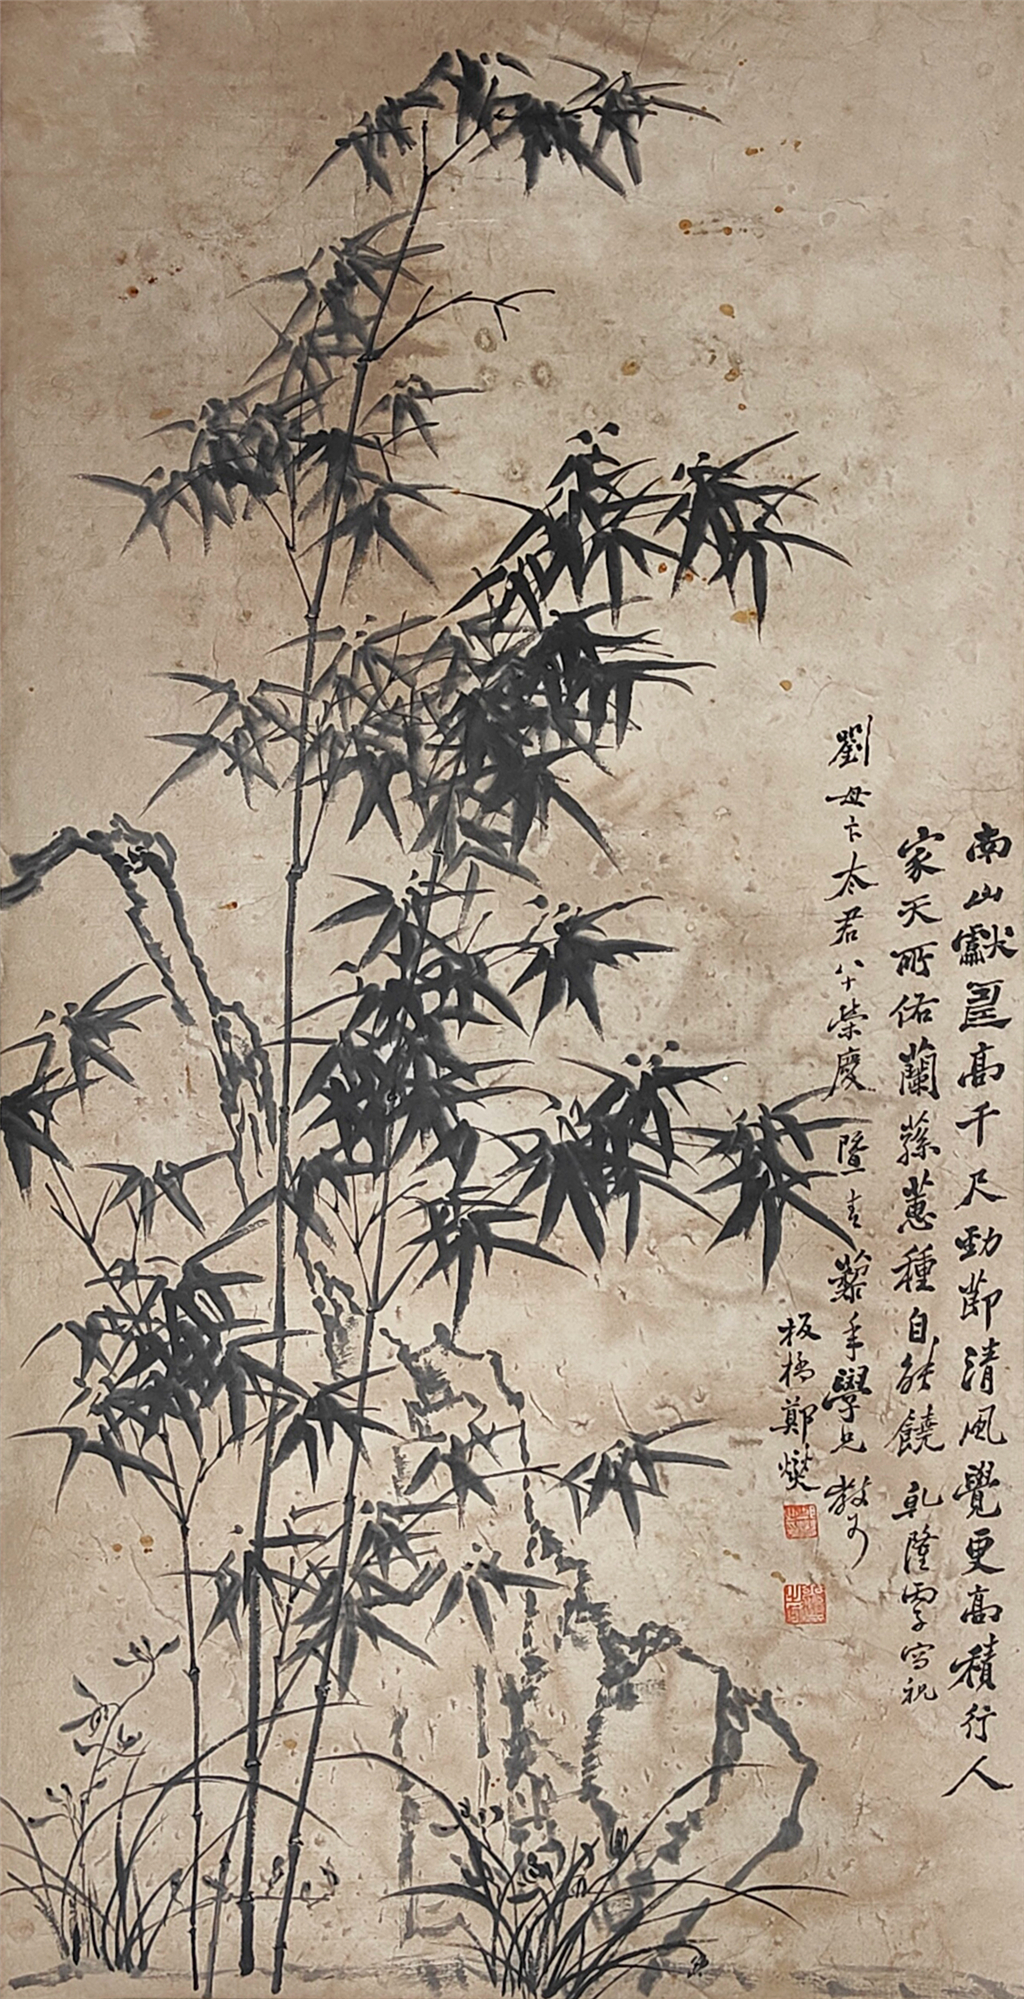 南山獻壽高千尺勁節清風覺更高積行人
家天所佑蘭蓀蕙種自能饒 乾隆 寫祝
劉母卞太君八十榮慶 隆青 藜年學兄教可
板橋鄭燮